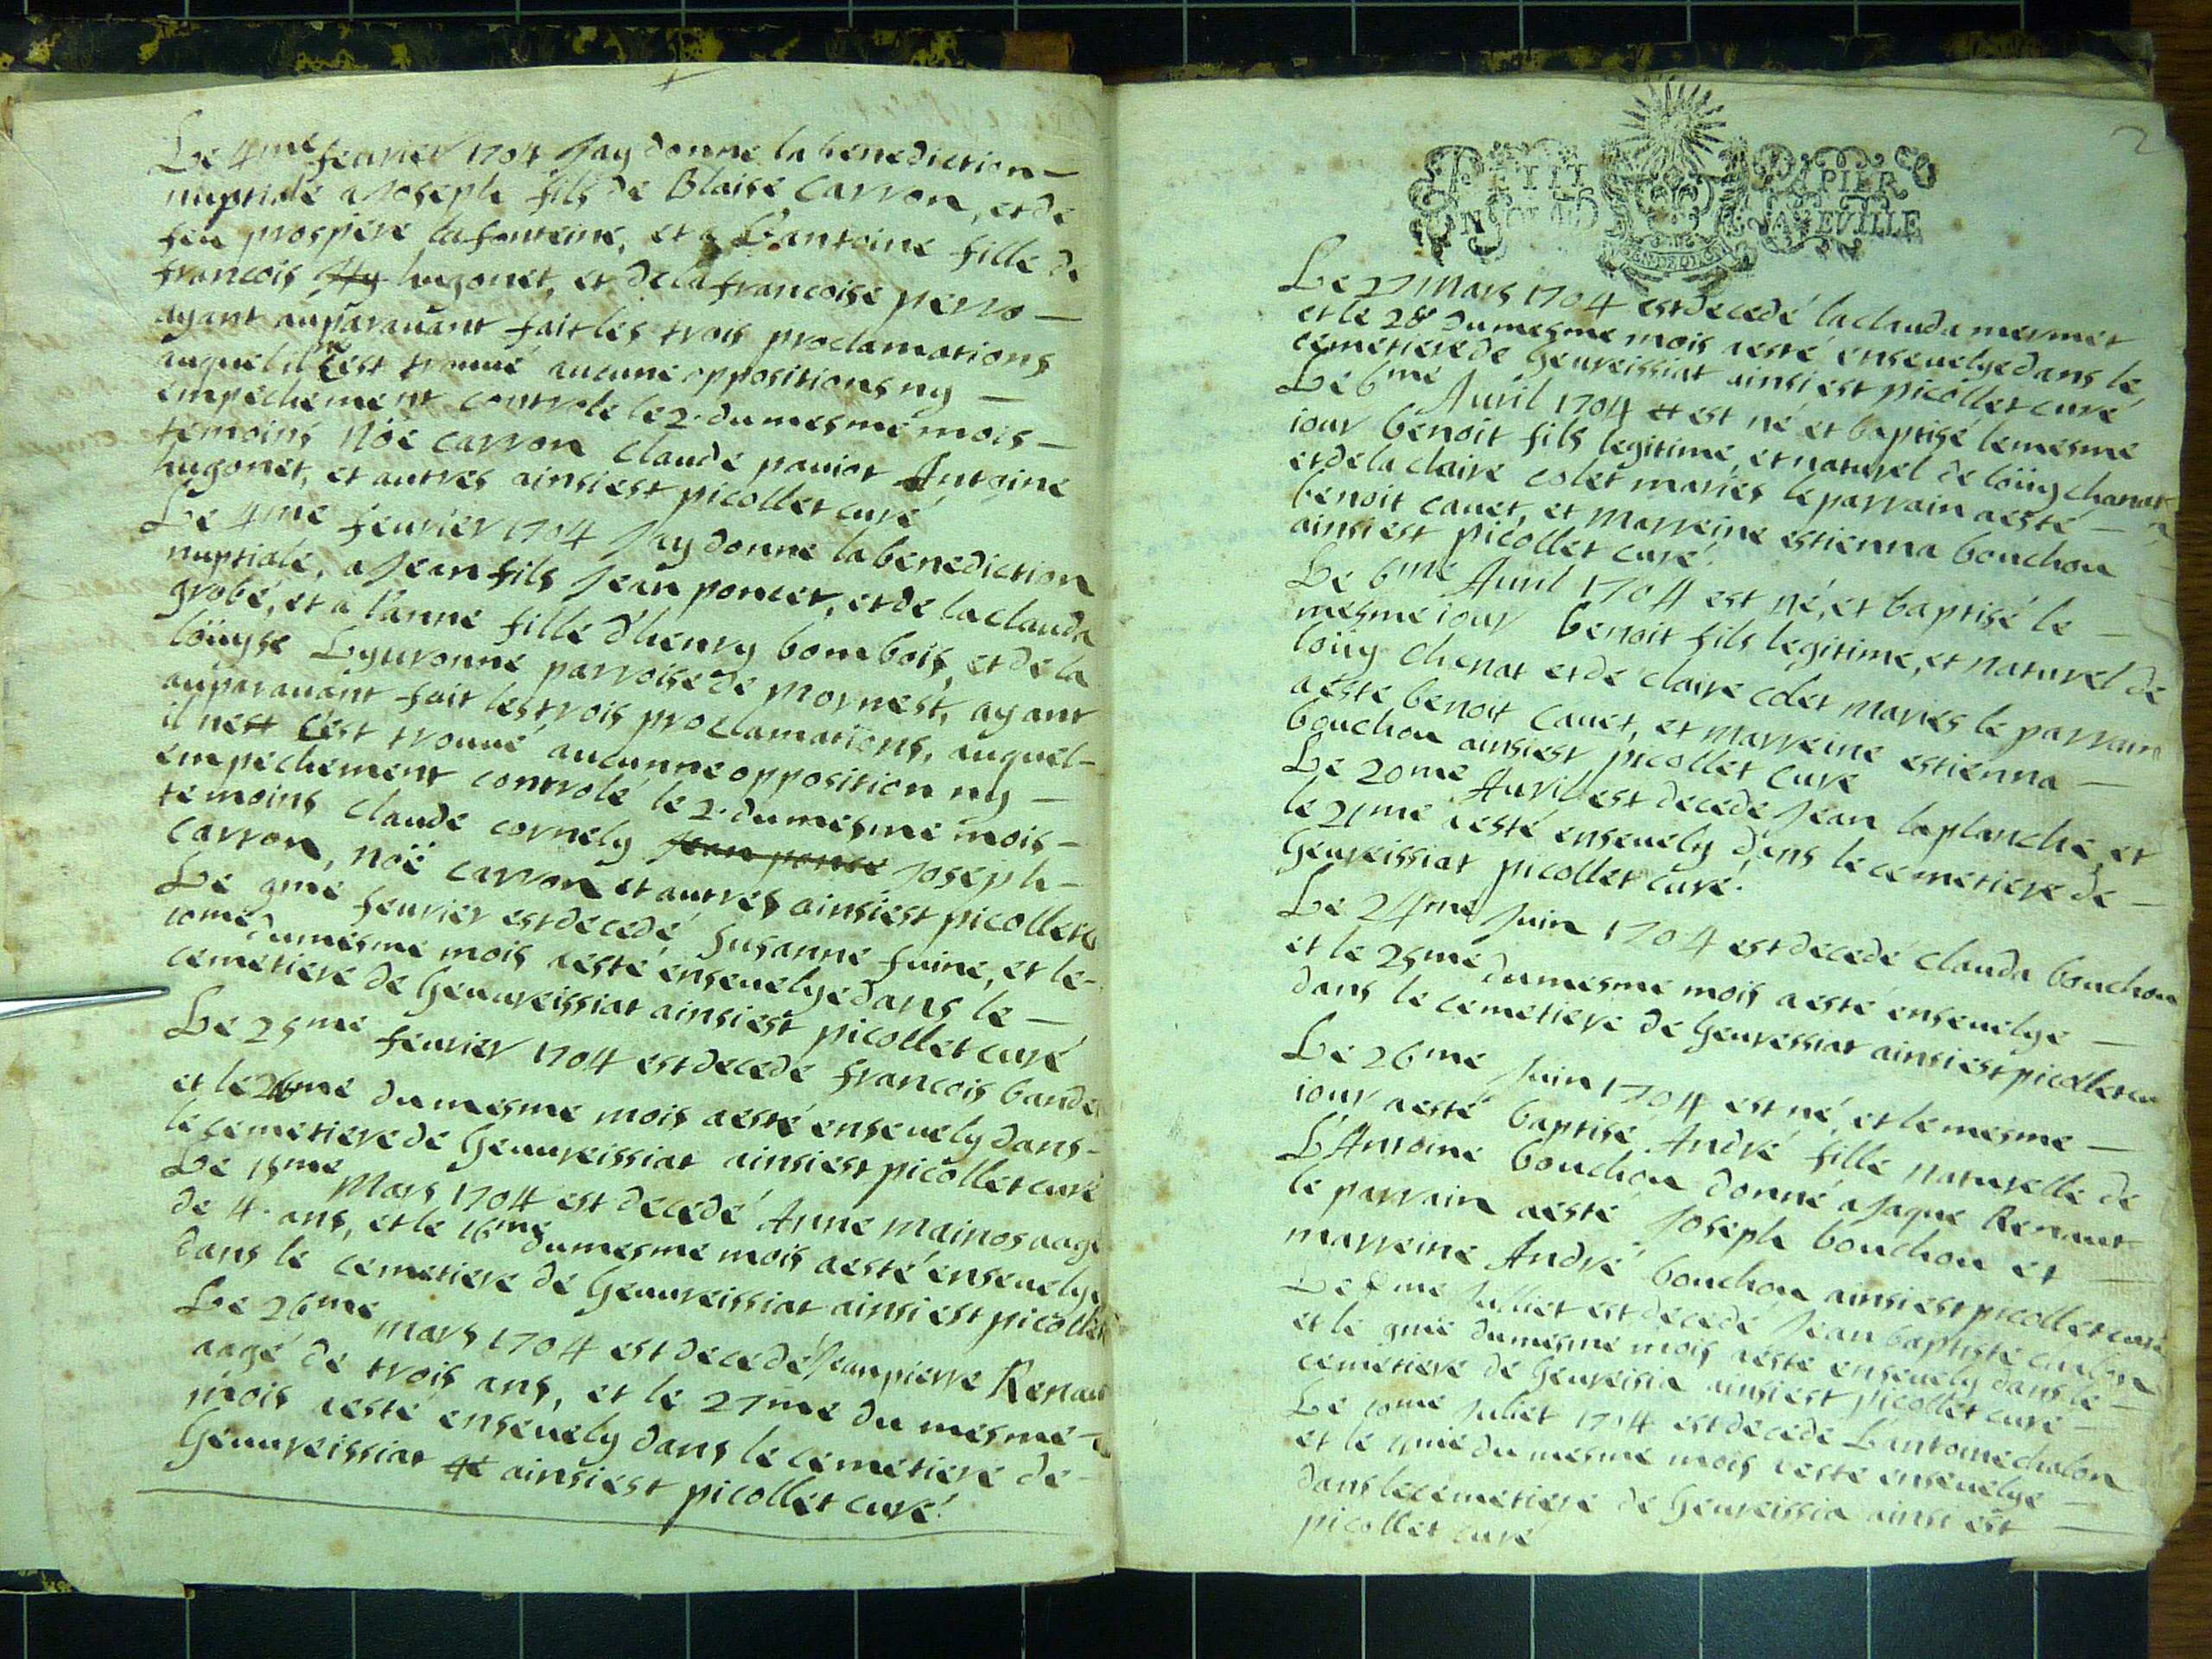 Le 4me feurier 1704 Jay donne la benediction —
nuptiale a Joseph fils de Blaise Carron, et de
feu prospere lafonteine, et a L'antoine fille de
francois hugonet, et de la francoise perro —
ayant auparauant fait les trois proclamations
auquel il ne c'est trouué aucune oppositions ny —
empechement controle le 2. du mesme mois —
temoins Noë carron Claude pauiot Antoine
hugonet, et autres ainsi est picollet curé
Le 4me feurier 1704 Jay donne la benediction
nuptiale, a Jean fils Jean poncet, et de la clauda
grobé, et a l'anne fille d'henry bombois, et de la
loüyse Lyuronne parroise de mornest, ayant
auparauant fait les trois proclamations, auquel —
il nest c'est trouué aucunne opposition ny —
empechement controlé le 2. du mesme mois —
temoins claude cornely Jean ponse Joseph —
carron, noë carron et autres ainsi est picollet c
Le 9me feurier est decedé susanne fuine, et le —
10me du mesme mois aesté enseuelye dans le —
cemetiere de Geuureissiat ainsi est picollet curé
Le 25me feurier 1704 est decedé francois baude
et le 26me du mesme mois aesté enseuely dans —
le cemetiere de Geuureissiat ainsi est picollet curé
Le 15me Mars 1704 est decedé Anne mainos aagé
de 4. ans, et le 16me du mesme mois aesté enseuelye
dans le cemetiere de Geuureissiat ainsi est picollet
Le 26me mars 1704 est decedé Jean pierre Renaut
aagé de trois ans, et le 27me du mesme —
mois aesté enseuely dans le cemetiere de —
Geuureissiat et ainsi est picollet curé.
2
PETIT PAPIER
Le 27 Mars 1704 est decedé la clauda mermet
et le 28 du mesme mois aesté enseuelye dans le
cemetiere de Geureissiat ainsi est picollet curé
Le 6me Auril 1704 et est né et baptisé le mesme
iour benoit fils legitime, et naturel de loüy chanat
et de la claire colet mariés le parrain aesté —
benoit cauet, et marreine estienna bouchon
ainsi est picollet curé.
Le 6me Auril 1704 est né, et baptisé le —
mesme iour benoit fils legitime, et naturel de
loüy chenat et de claire colet mariés le parrain
aesté benoit cauet, et marreine estienna —
bouchon ainsi est picollet curé
Le 20me Auril est decedé Jean laplanche, et
le 21me aesté enseuely dans le cemetiere de —
Geureissiat picollet curé.
Le 24me Juin 1704 est decedé clauda bouchon
et le 25me du mesme mois aesté enseuelye —
dans le cemetiere de Geuressiat ainsi est picollet cu
Le 26me Juin 1704 est né, et le mesme —
iour aesté baptisé André fille naturelle de
L'Antoine bouchon donné a Jaque Renaut
le parrain aesté Joseph bouchon et —
marreine André bouchon ainsi est picollet curé
Le 8me Julliet est decedé Jean baptiste
et le 9me du mesme mois aesté enseuely dans le —
cemetiere de Geureisia ainsi est picollet curé —
Le 10me Juliet 1704 est decedé L'antoine cholon
et le 11me du mesme mois aesté enseuelye —
dans le cemetiere de Geureissia ainsi est —
picollet curé